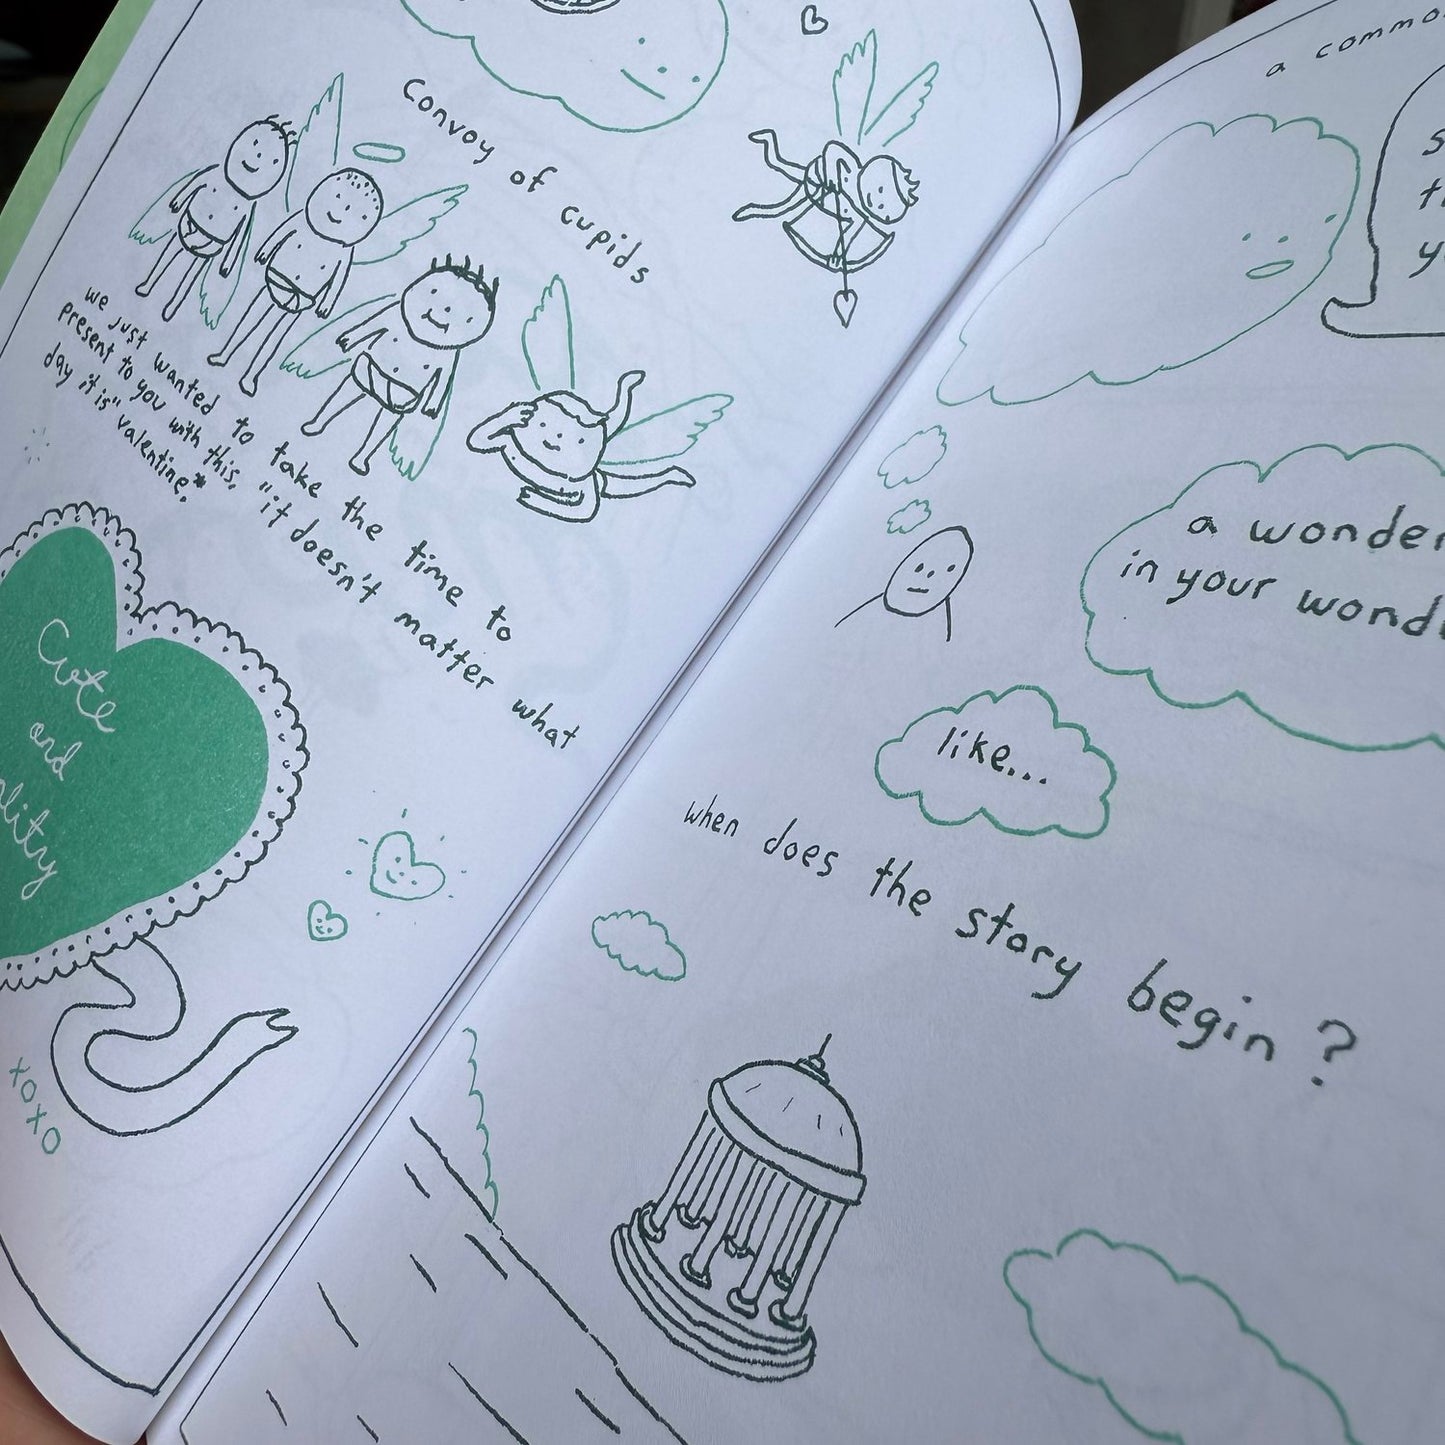 Convoy of cupids
we just wanted to take the time to
present to you with this, "it doesn't matter what
day it is" valentine.*
Cute
and
xoxo
a
in your
a wonder
like...
when does the story begin?